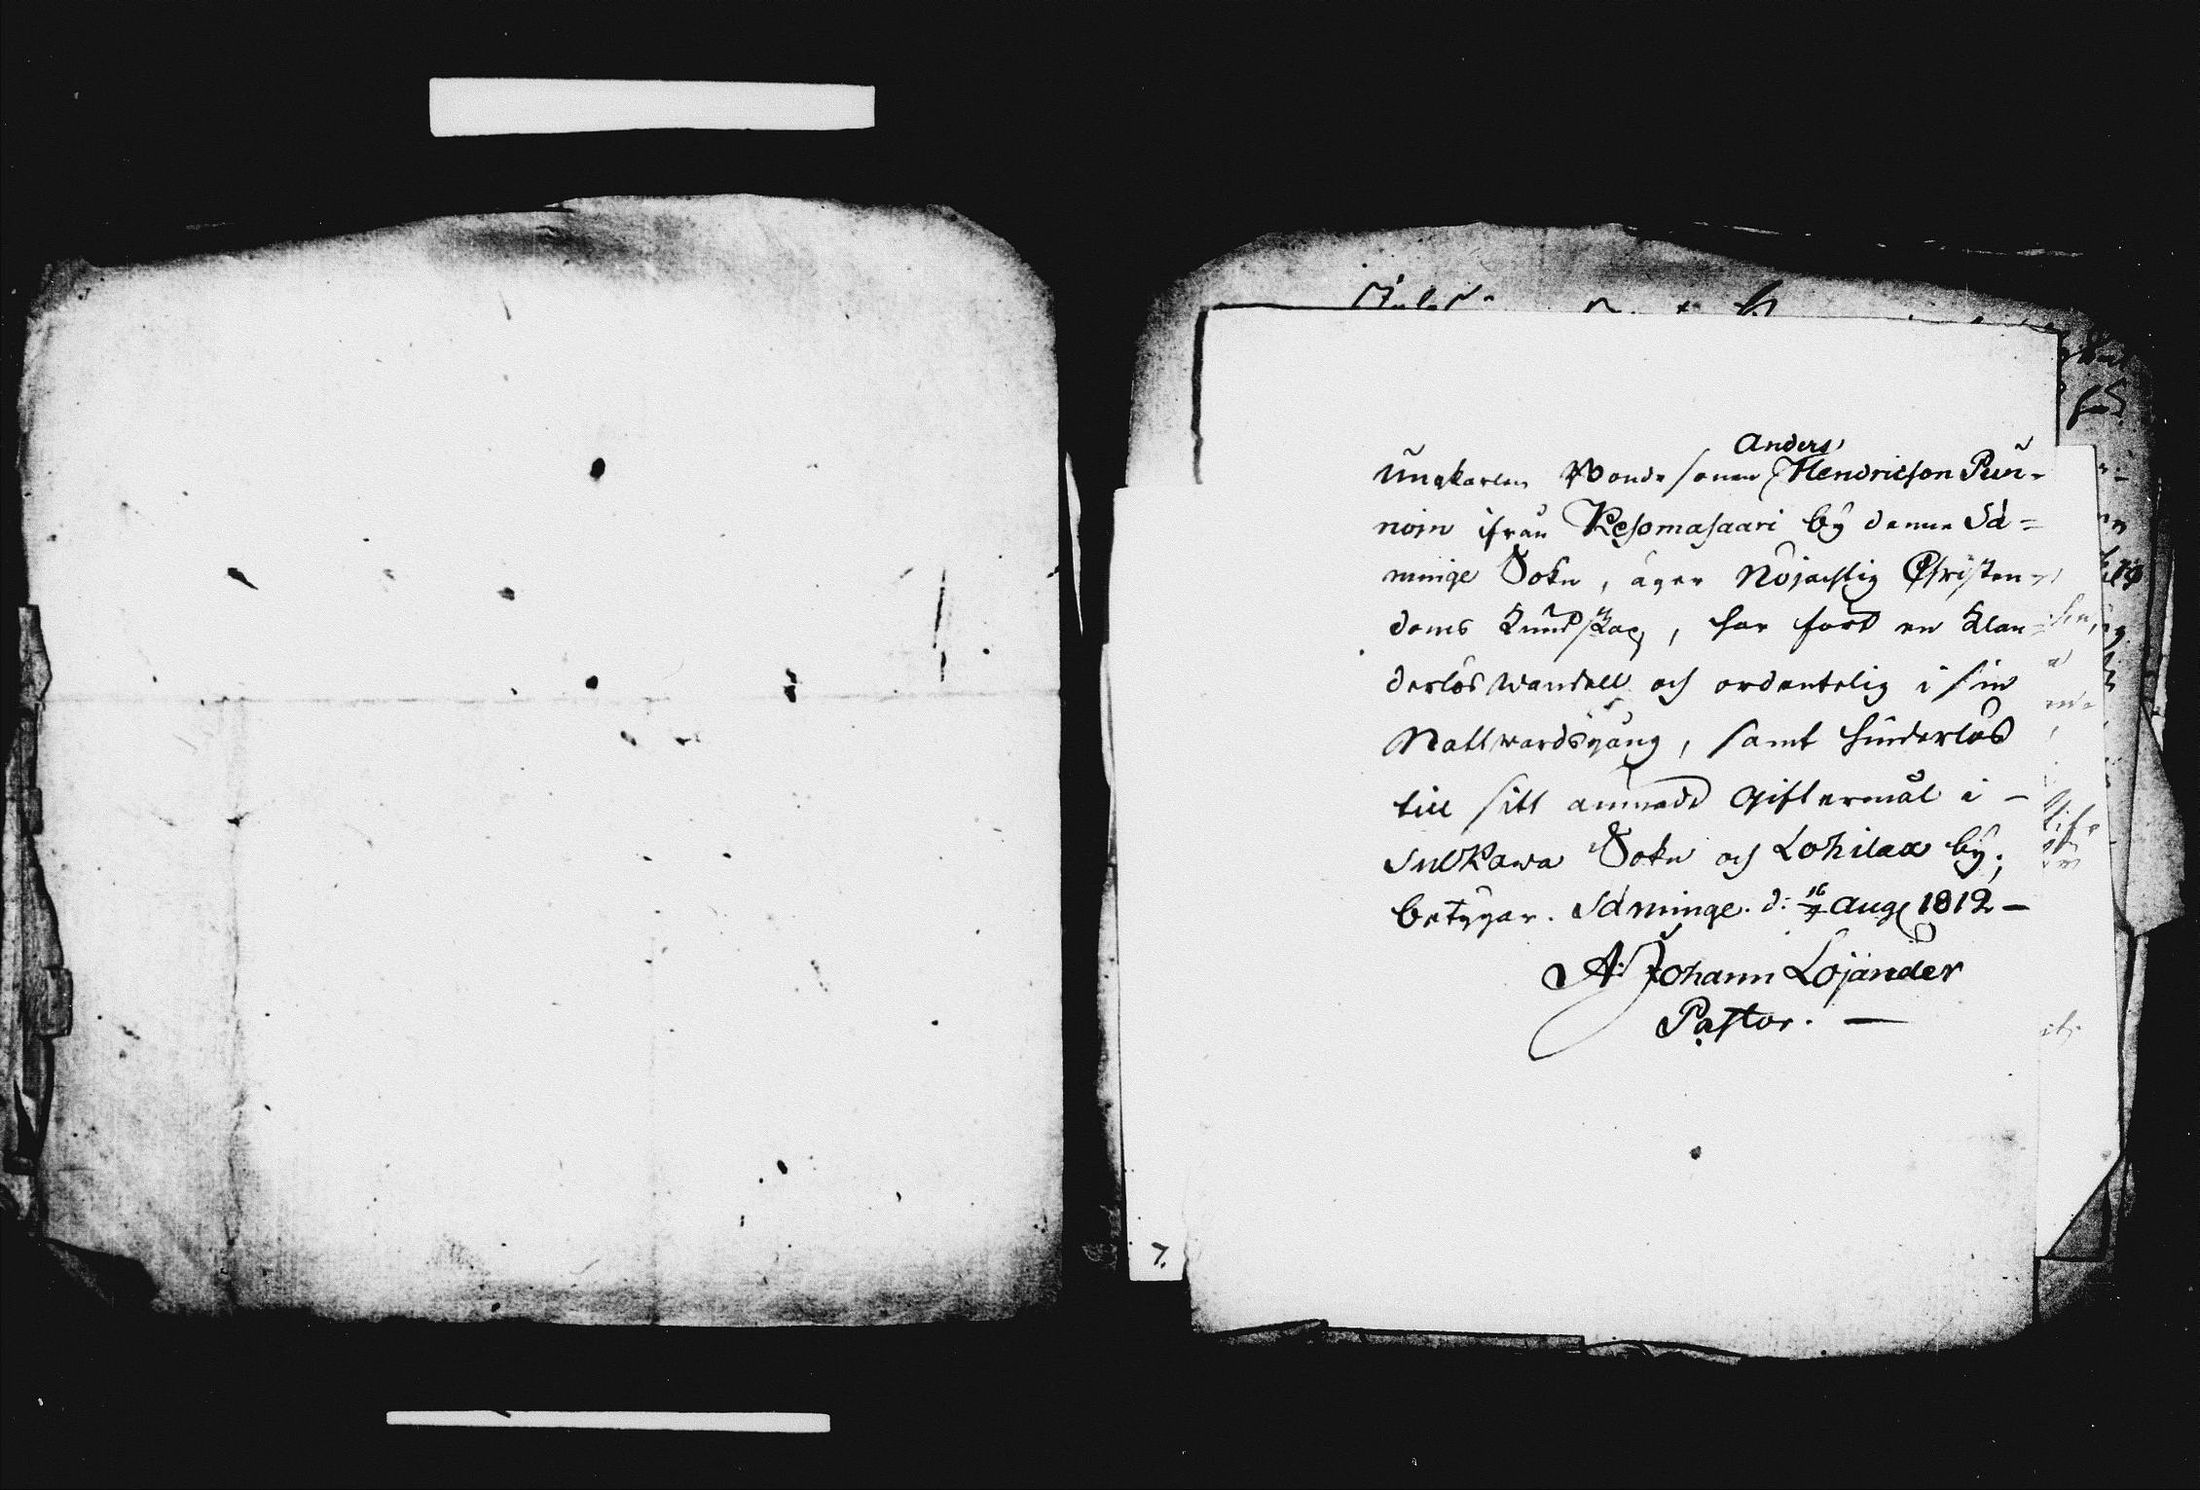 Anders
Ungkarlen Bonde sonen Hendricson Pun-
noin ifrån Kesomasaari bÿ denna Sä=
minge Sokn, äger Nöjachtig Christen-
doms Kundskap, har fört en klan-
derlös wandell och ordentelig i sin
Nattwardsgång, samt hinderlös
till sitt ämnade Giftermål i -
Sulkawa Sokn och Lohilax bÿ;
betygar. Säminge. d: 16/4 Aug 1812 -
A: Johann Lojander
Pastor. -
7.